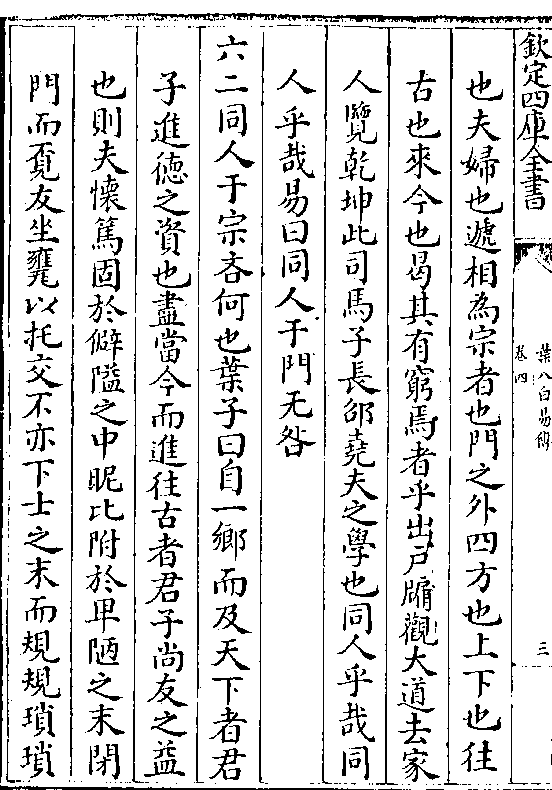 欽定四庫全書
葉八白易傳
卷四
三
也夫婦也遞相為宗者也門之外四方也上下也往
古也來今也曷其有窮焉者乎出戸牖觀大道去家
人覽乾坤此司馬子長邵堯夫之學也同人乎哉同
人乎哉易曰同人于門无咎
六二同人于宗吝何也葉子曰自一鄉而及天下者君
子進德之資也盡當今而進往古者君子尚友之益
也則夫懷篤固於僻隘之中昵比附於卑陋之末閉
門而覓友坐甕以托交不亦下士之末而規規瑣瑣